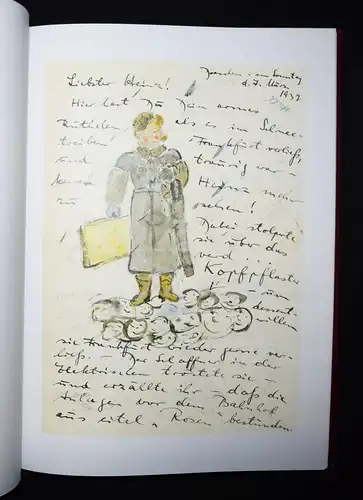 Dresden – am Sonntag
d. 7. März
1937
Liebster Heinz!
Hier hast Du Dein armes
Ruthchen als es im Schnee-
treiben Frankfurt verließ,
und traurig war –
keinen Heinz mehr
zu sehen!
Dabei stolperte
sie über das
verd....
Kopfpflaster
um
dessent-
willen
sie Frankfurt wieder gerne ver-
ließ. – Der Schaffner in der
Elektrischen tröstete sie –
und erzählte ihr – daß die
Anlagen vor dem Bahnhof
aus eitel „Rosen" bestünden